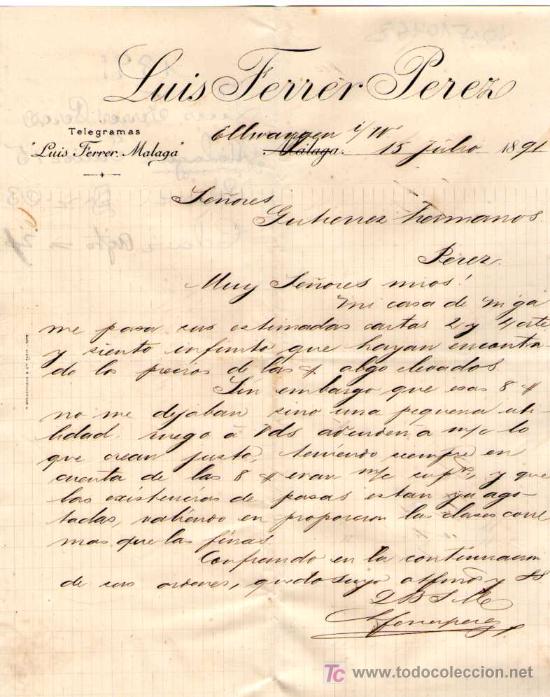 Luis Ferrer Perez
Telegramas
"Luis Ferrer. Malaga"
Ellwangen i/W
Málaga. 15 julio 1891
Señores
Gutierrez hermanos
Perez
Muy Señores mios!
Mi casa de Mga
me pasa sus estimadas cartas 2 y 4 cte
y siento infinito que hayan encontra-
do los precios de las # algo elevados
Sin embargo que esas 8 #
no me dejaban sino una pequeña uti-
lidad, ruego á Vds abonden a m/c lo
que crean justo, teniendo siempre en
cuenta de las 8 # eran m/c supre, y que
las existencias de pasas estan ya ago-
tadas, valiendo en proporcion las clases corrie
mas que las finas.
Confiando en la continuacion
de sus ordenes, quedo suyo affmo y SS
QBSM
TC
www.todocoleccion.net